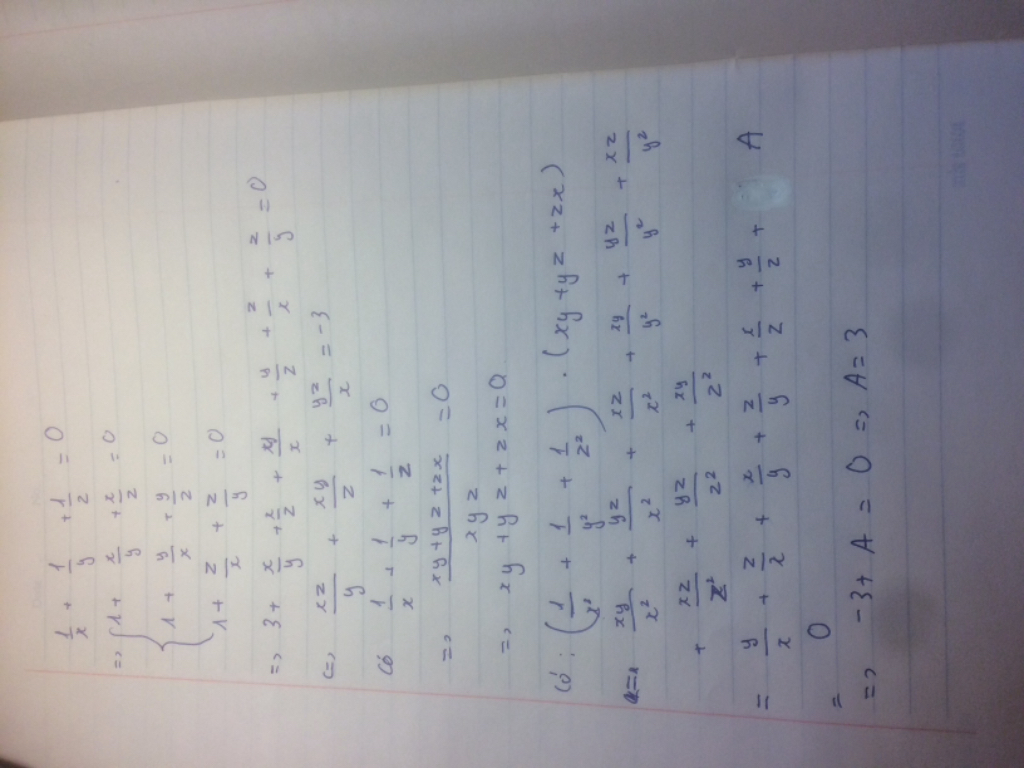 1/x + 1/y + 1/z = 0
=> { 1 + x/y + x/z = 0
1 + y/x + y/z = 0
1 + z/x + z/y = 0
=> 3 + x/y + x/z + y/x + y/z + z/x + z/y = 0
<=> xz/y + xy/z + yz/x = -3
Có 1/x + 1/y + 1/z = 0
=> (xy + yz + zx)/xyz = 0
=> xy + yz + zx = 0
Có: (1/x² + 1/y² + 1/z²) . (xy + yz + zx)
= xy/x² + yz/x² + xz/x² + xy/y² + yz/y² + xz/y²
+ xz/z² + yz/z² + xy/z²
= y/x + z/x + x/y + z/y + x/z + y/z + A
= 0
=> -3 + A = 0 => A = 3